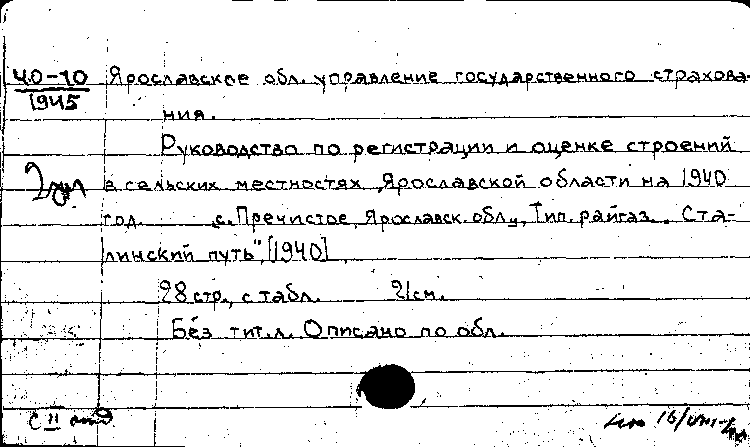 40-10 Ярославское обл. управление государственного страхова-
1945
ния.
Руководство по регистрации и оценке строений
в сельских местностях Ярославской области на 1940
год. с. Пречистое, Ярославск. обл., Тип. райгаз. „Ста-
линский путь", [1940]
28 стр., с табл. 21см.
Без тит. л. Описано по обл.
С II
16/VIII-